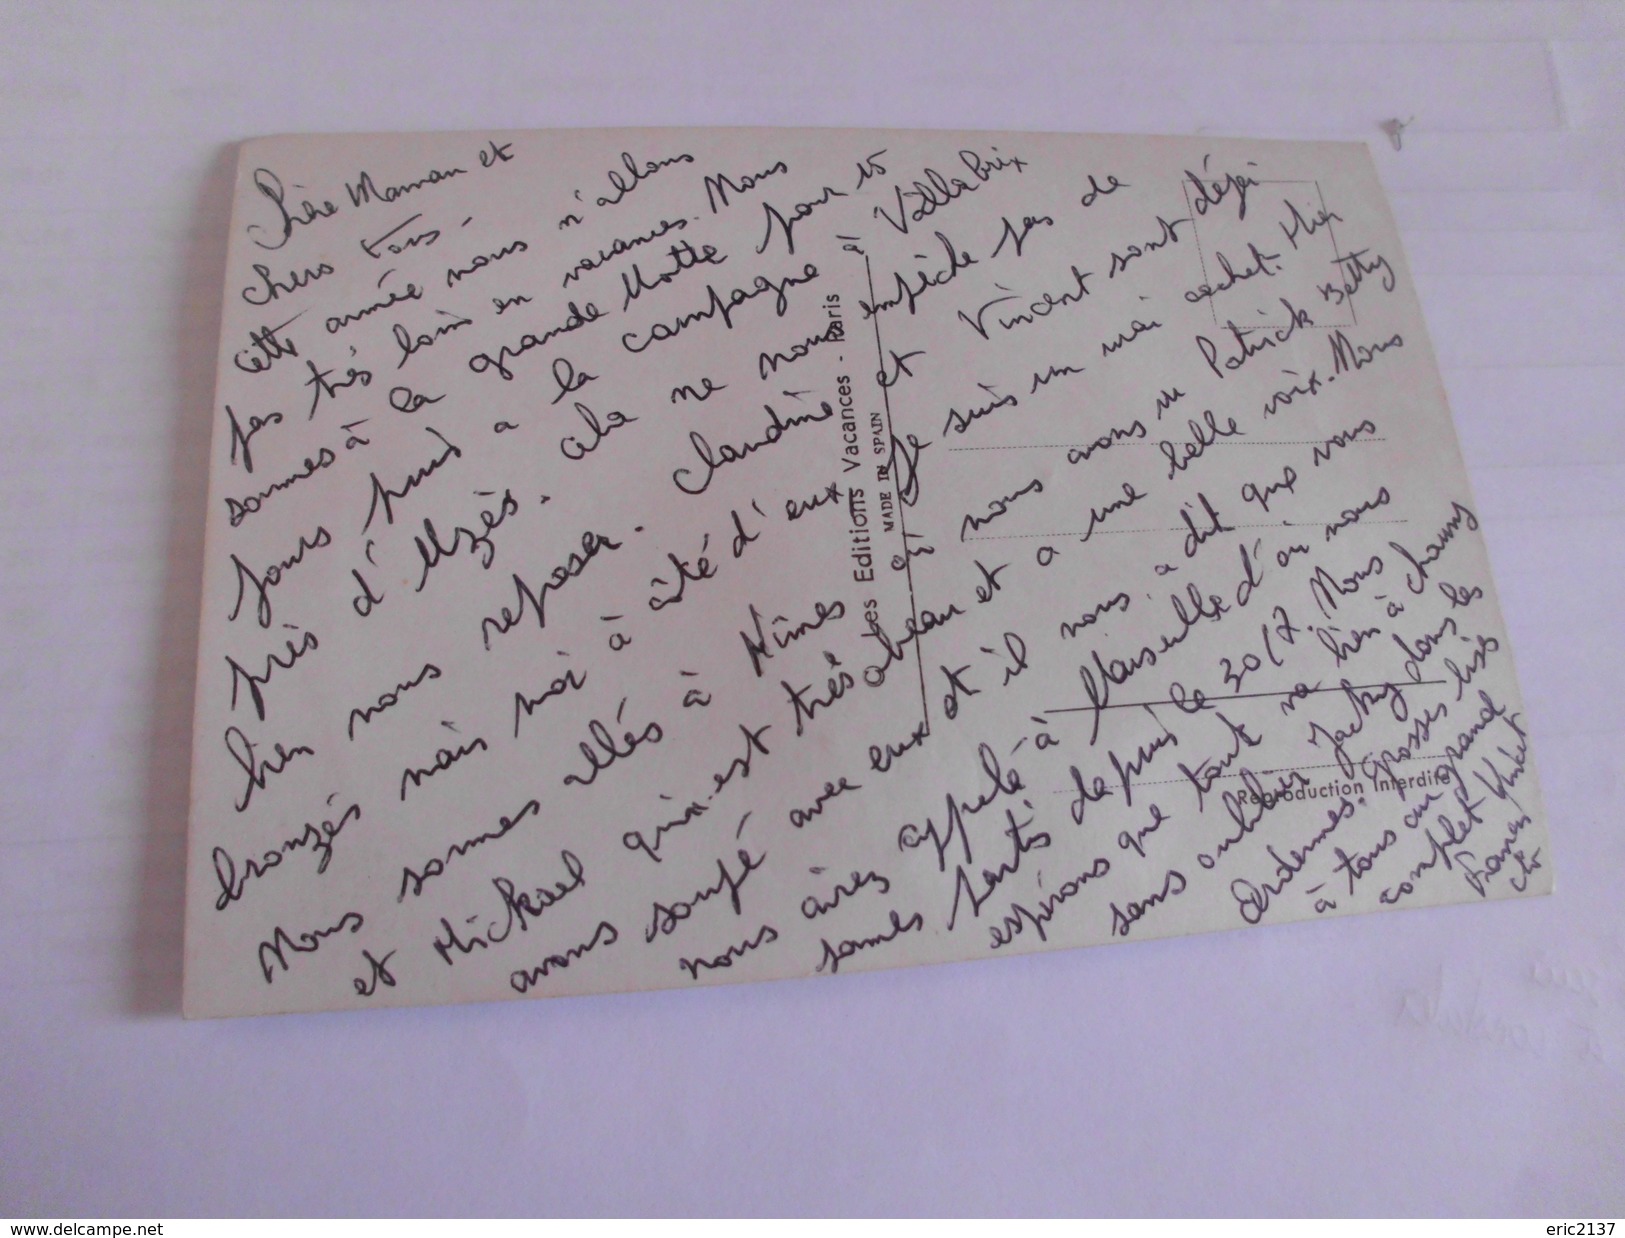 Chère Maman et
chers tous -
Cette année nous n'allons
pas très loin en vacances. Nous
sommes à la grande Motte pour 15
jours puis a la campagne à Vallabrix
près d'Uzès. cela ne nous empêche pas de
bien nous reposer. Claudine et Vincent sont déjà
bronzés mais moi à côté d'eux je suis un vrai cachet. Hier
Nous sommes allés à Nîmes où nous avons vu Patrick Betty
et Mickael qui est très beau et a une belle voix. Nous
avons soupé avec eux et il nous a dit que vous
nous aviez appelé à Marseille d'où nous
sommes partis depuis le 30/7. Nous
espérons que tout va bien à Chauny
sans oublier Jacky dans les
Ardennes. Grosses bises
à tous au grand
complet
Francis
Les Editions Vacances - Paris
MADE IN SPAIN
Reproduction Interdite
www.delcampe.net
eric2137